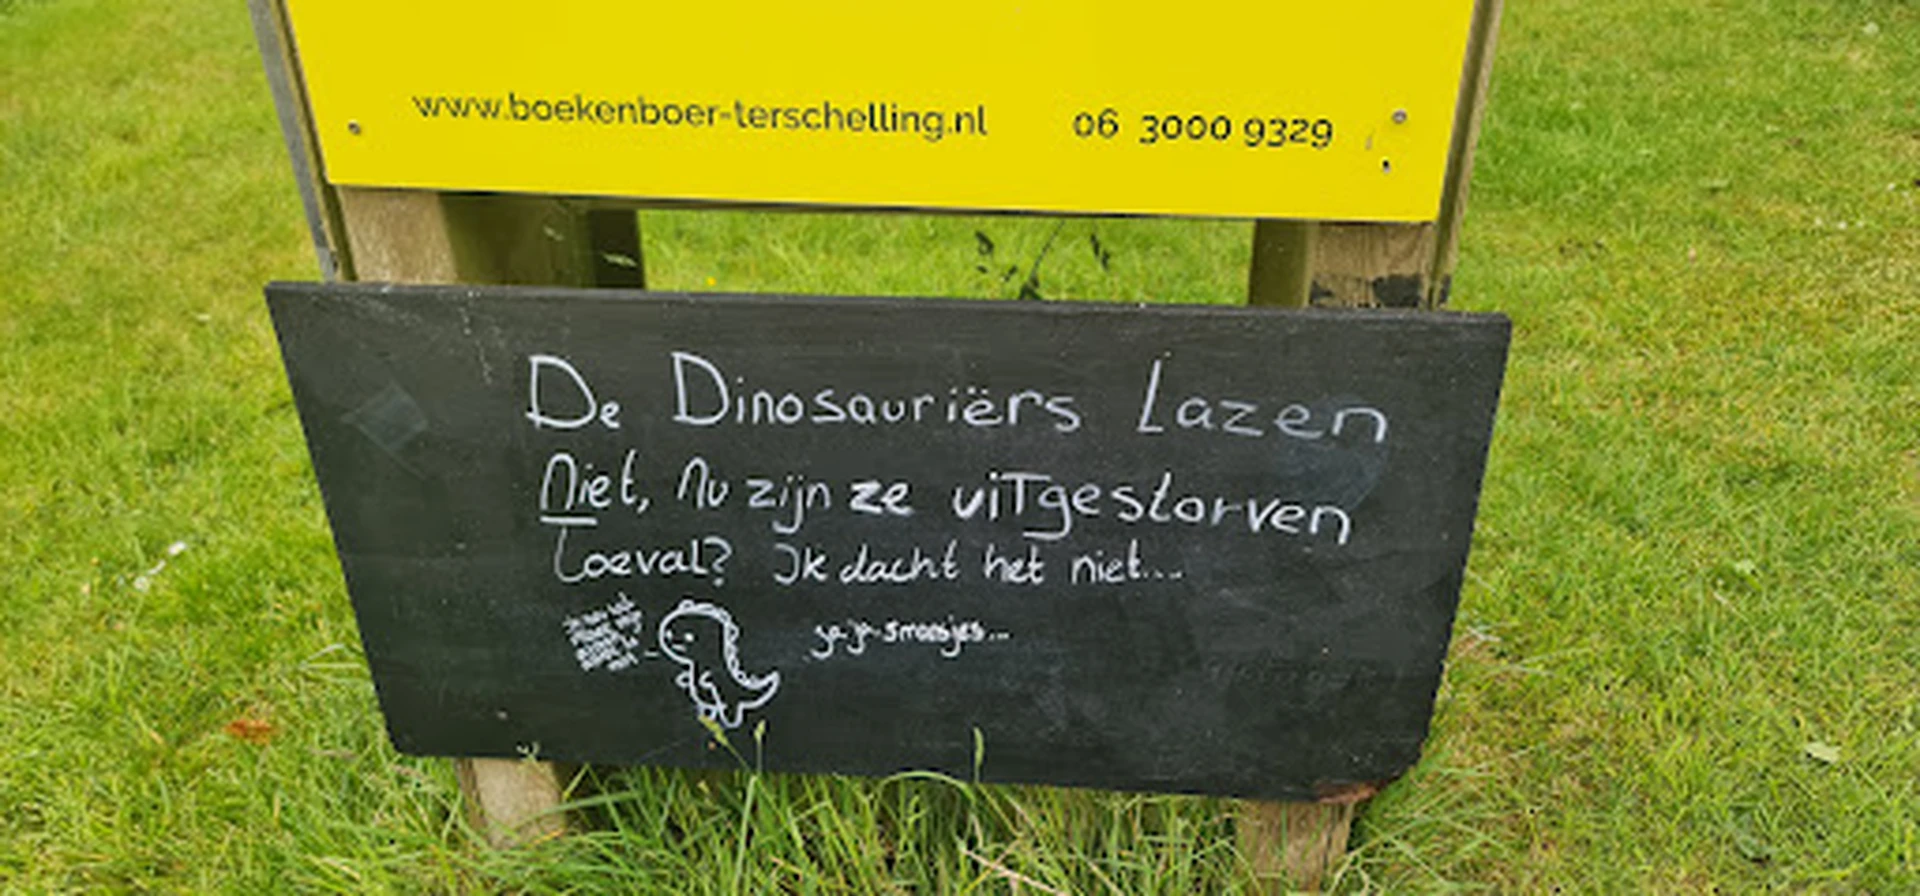 www.boekenboer-terschelling.nl 06 3000 9329
De Dinosauriërs Lazen
niet, nu zijn ze uitgestorven
Toeval? Ik dacht het niet...
ja-ja-smoesjes...